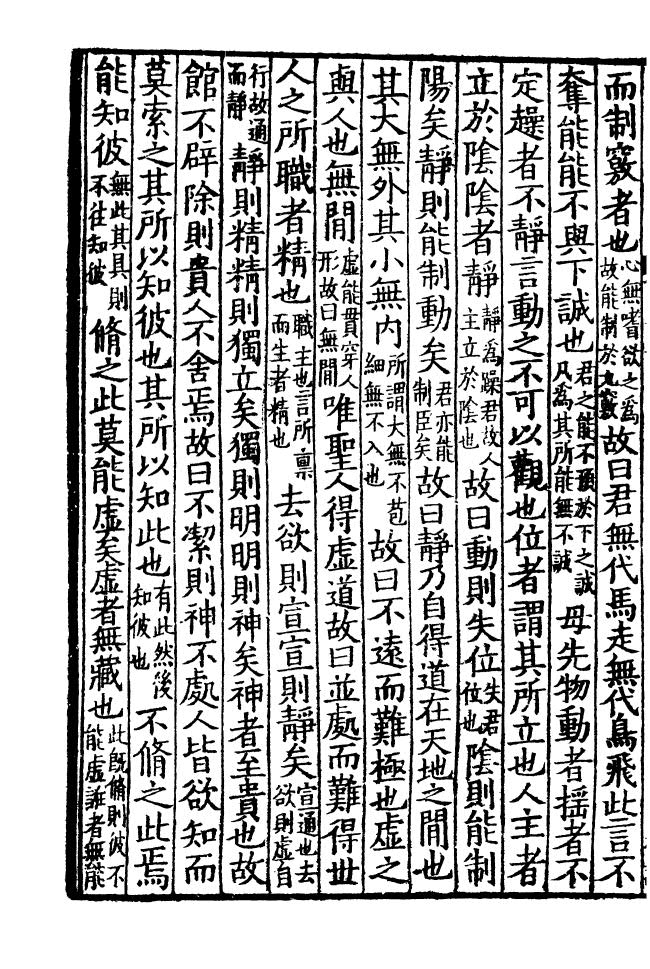 而制竅者也心無嗜欲之為故能制於九竅故曰君無代馬走無代鳥飛此言不
奪能能不與下誠也君之能不預於下之誠凡為其所能無不誠毋先物動者揺者不
定趮者不靜言動之不可以觀也位者謂其所立也人主者
立於陰陰者靜靜為躁君故人主立於陰也故曰動則失位失君位也陰則能制
陽矣靜則能制動矣君亦能制臣矣故曰靜乃自得道在天地之閒也
其大無外其小無内所謂大無不苞細無不入也故曰不遠而難極也虚之
與人也無閒虚能貫穿人形故曰無閒唯聖人得虚道故曰並處而難得世
人之所職者精也職主也言所禀而生者精也去欲則宣宣則靜矣宣通也去欲則虚自
行故通而靜靜則精精則獨立矣獨則明明則神矣神者至貴也故
館不辟除則貴人不舍焉故曰不潔則神不處人皆欲知而
莫索之其所以知彼也其所以知此也有此然後知彼也不脩之此焉
能知彼無此其具則不往知彼脩之此莫能虚矣虚者無藏也此既脩則彼不能虚誰者無能